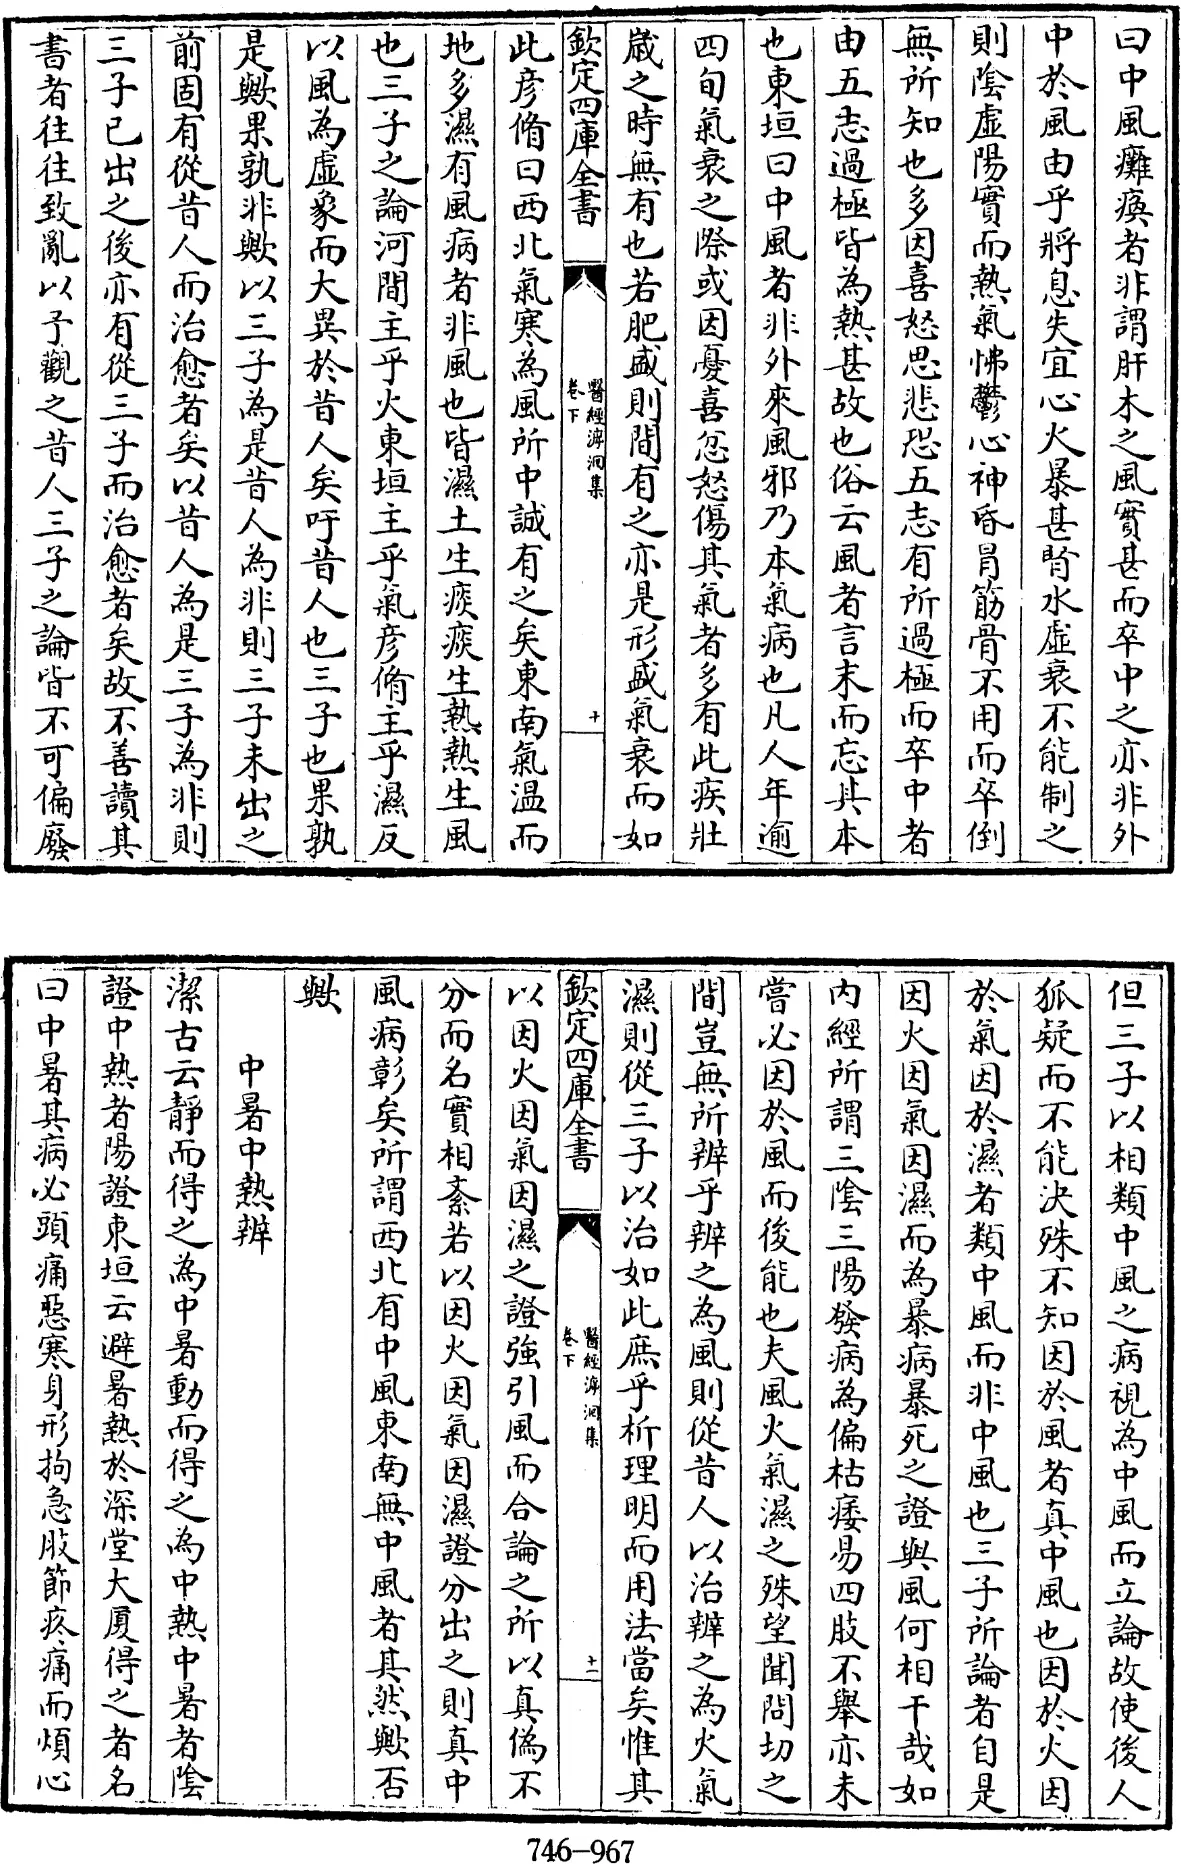 曰中風癱瘓者非謂肝木之風實甚而卒中之亦非外
中於風由乎將息失宜心火暴甚腎水虛衰不能制之
則陰虛陽實而熱氣怫鬱心神昏冒筋骨不用而卒倒
無所知也多因喜怒思悲恐五志有所過極而卒中者
由五志過極皆為熱甚故也俗云風者言末而忘其本
也東垣曰中風者非外來風邪乃本氣病也凡人年逾
四旬氣衰之際或因憂喜忿怒傷其氣者多有此疾壯
歲之時無有也若肥盛則間有之亦是形盛氣衰而如
欽定四庫全書
醫經溯洄集
卷下
十
此彦脩曰西北氣寒為風所中誠有之矣東南氣溫而
地多濕有風病者非風也皆濕土生痰痰生熱熱生風
也三子之論河間主乎火東垣主乎氣彦脩主乎濕反
以風為虛象而大異於昔人矣吁昔人也三子也果孰
是歟果孰非歟以三子為是昔人為非則三子未出之
前固有從昔人而治愈者矣以昔人為是三子為非則
三子已出之後亦有從三子而治愈者矣故不善讀其
書者往往致亂以予觀之昔人三子之論皆不可偏廢
但三子以相類中風之病視為中風而立論故使後人
狐疑而不能決殊不知因於風者真中風也因於火因
於氣因於濕者類中風而非中風也三子所論者自是
因火因氣因濕而為暴病暴死之證與風何相干哉如
內經所謂三陰三陽發病為偏枯痿易四肢不舉亦未
嘗必因於風而後能也夫風火氣濕之殊望聞問切之
間豈無所辨乎辨之為風則從昔人以治辨之為火氣
濕則從三子以治如此庶乎析理明而用法當矣惟其
欽定四庫全書
醫經溯洄集
卷下
十一
以因火因氣因濕之證強引風而合論之所以真偽不
分而名實相紊若以因火因氣因濕證分出之則真中
風病彰矣所謂西北有中風東南無中風者其然歟否
歟
中暑中熱辨
潔古云靜而得之為中暑動而得之為中熱中暑者陰
證中熱者陽證東垣云避暑熱於深堂大厦得之者名
曰中暑其病必頭痛惡寒身形拘急肢節疼痛而煩心
746-967